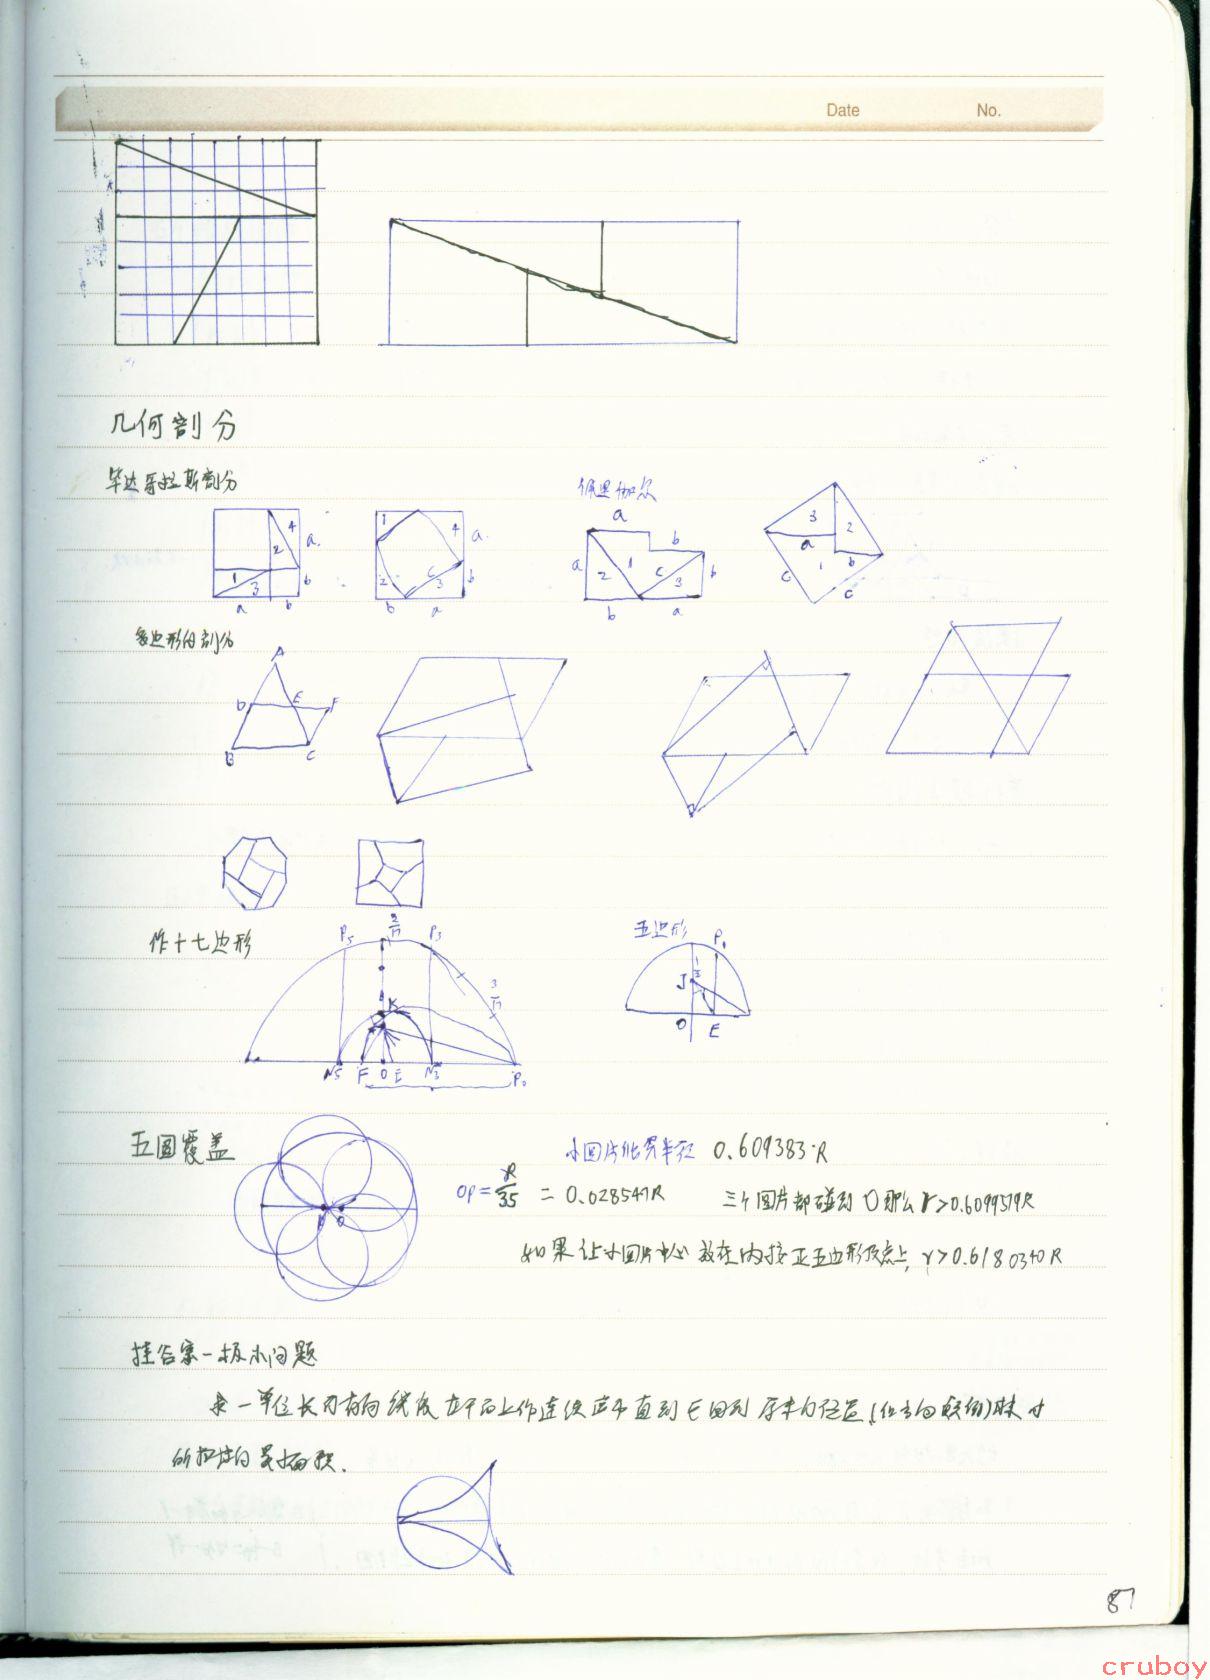 Date No.
几何剖分
毕达哥拉斯剖分
佩里伽尔
1 2 3 4 a b a b
1 2 3 4 c a b b a
a a b b b a 1 2 3 c
3 2 1 a b c c
多边形的剖分
A D E F B C
作十七边形
P5 P3 K N5 F O E N3 P0
五边形
P1 J O E
五圆覆盖
小圆片临界半径 0.609383·R
OP = R/35 = 0.028547R
三个圆片都碰到 O 那么 r>0.6099579R
如果让小圆片中心放在内接正五边形顶点上, r>0.6180340R
挂谷宗一极小问题
求一单位长方有向线段在平面上作连续运动直到它回到原来的位置
所扫过的
87
cruboy